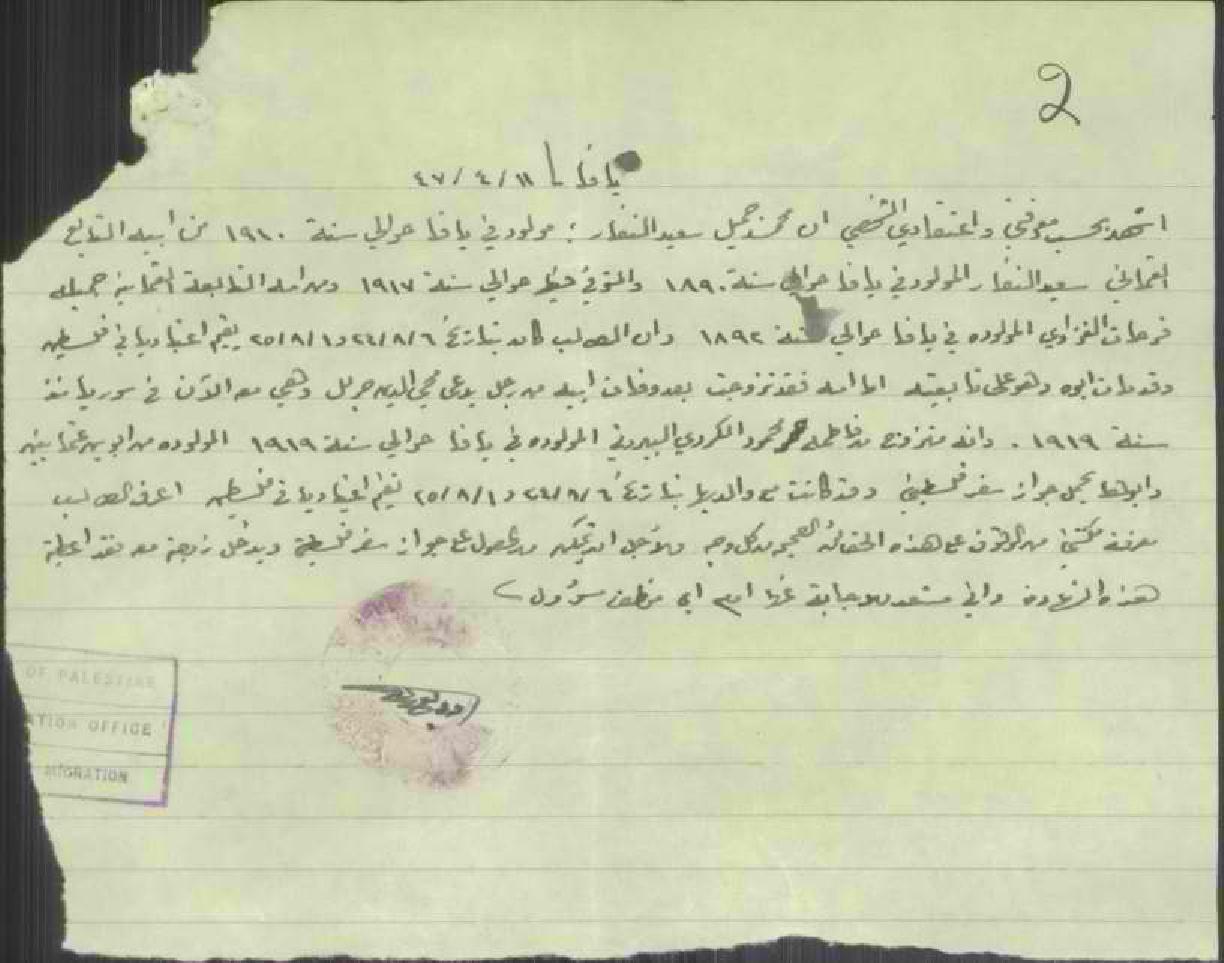 2
يافا ١١ / ٤ / ٤٧
اشهد بحسب معرفتي واعتقادي الشخصي ان محمد جميل سعيد النقار : مولود في يافا حوالي سنة ١٩١٠ من ابيه التابع
العثماني سعيد النقار المولود في يافا حوالي سنة ١٨٩٠ والمتوفي حوالي سنة ١٩١٧ ومن امه التابعة العثمانية جميله
فرحات الغزاوي المولوده في يافا حوالي سنة ١٨٩٢ وان الطالب كان بتاريخ ٢٤/٨/٦ و ٢٥/٨/١ يقيم اعتياديا في فلسطين
وقد مات ابوه وهو على تابعيته اما امه فقد تزوجت بعد وفات ابيه من رجل يدعى محي الدين وهي معه الآن في سوريا منذ
سنة ١٩١٩ . وانه متزوج من فاطمه محمود الكردي البيروتي المولوده في يافا حوالي سنة ١٩١٩ المولوده من ابوين عثمانيين
وابوها يحمل جواز سفر فلسطيني وقد كانت مع والديها بتاريخ ٢٤/٨/٦ و ٢٥/٨/١ تقيم اعتياديا في فلسطين اعرف الطالب
معرفة مكنتني من الوقوف على هذه الحقائق الصحيحه من كل وجه ولأجل ان يتمكن من الحصول على جواز سفر فلسطيني ويدخل زوجته معه فقد اعطيته
هذه الشهادة واني مستعد للاجابة عنها امام اي موظف مسؤول
OF PALESTINE
ATION OFFICE
MIGRATION